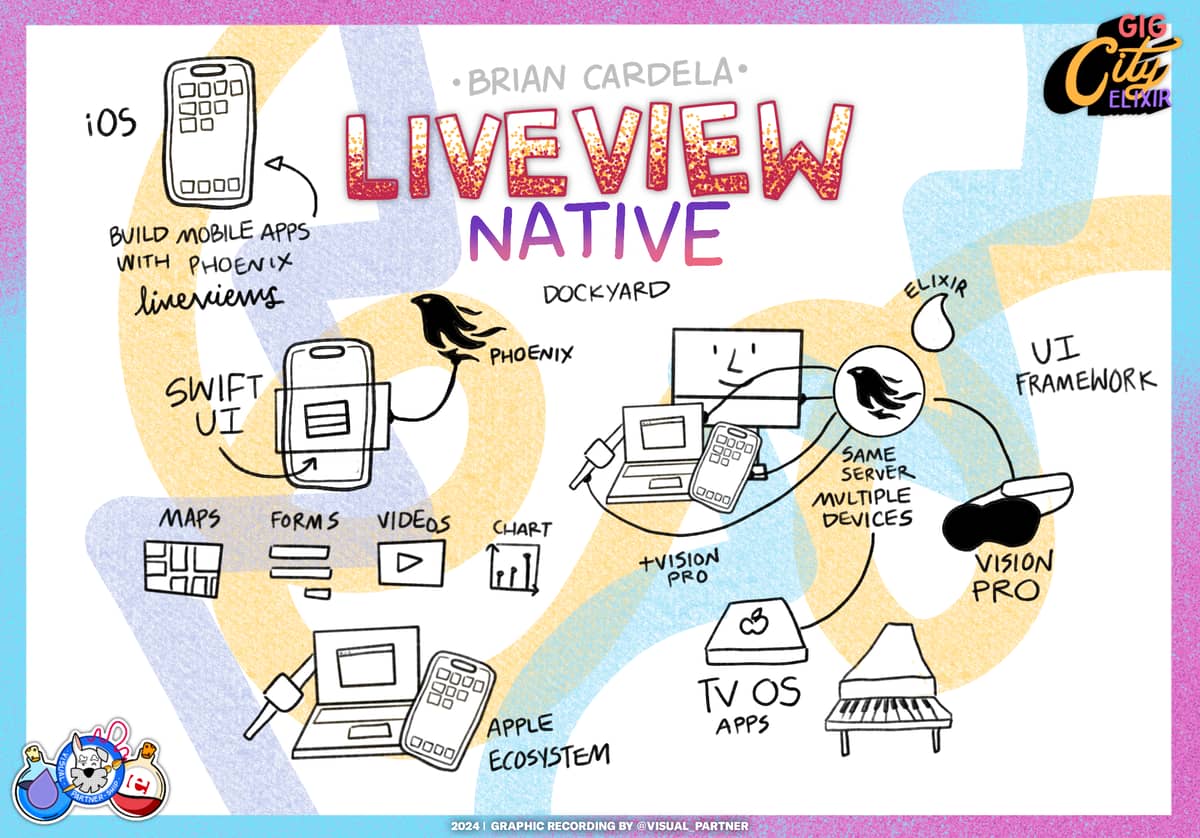 GIG
City
ELIXIR
•BRIAN CARDELA•
LIVEVIEW
NATIVE
DOCKYARD
iOS
BUILD MOBILE APPS
WITH PHOENIX
liveviews
PHOENIX
SWIFT
UI
MAPS
FORMS
VIDEOS
CHART
APPLE
ECOSYSTEM
ELIXIR
UI
FRAMEWORK
SAME
SERVER
MULTIPLE
DEVICES
+VISION
PRO
VISION
PRO
TV OS
APPS
VISUAL
PARTNER-SHIP
2024 | GRAPHIC RECORDING BY @VISUAL_PARTNER